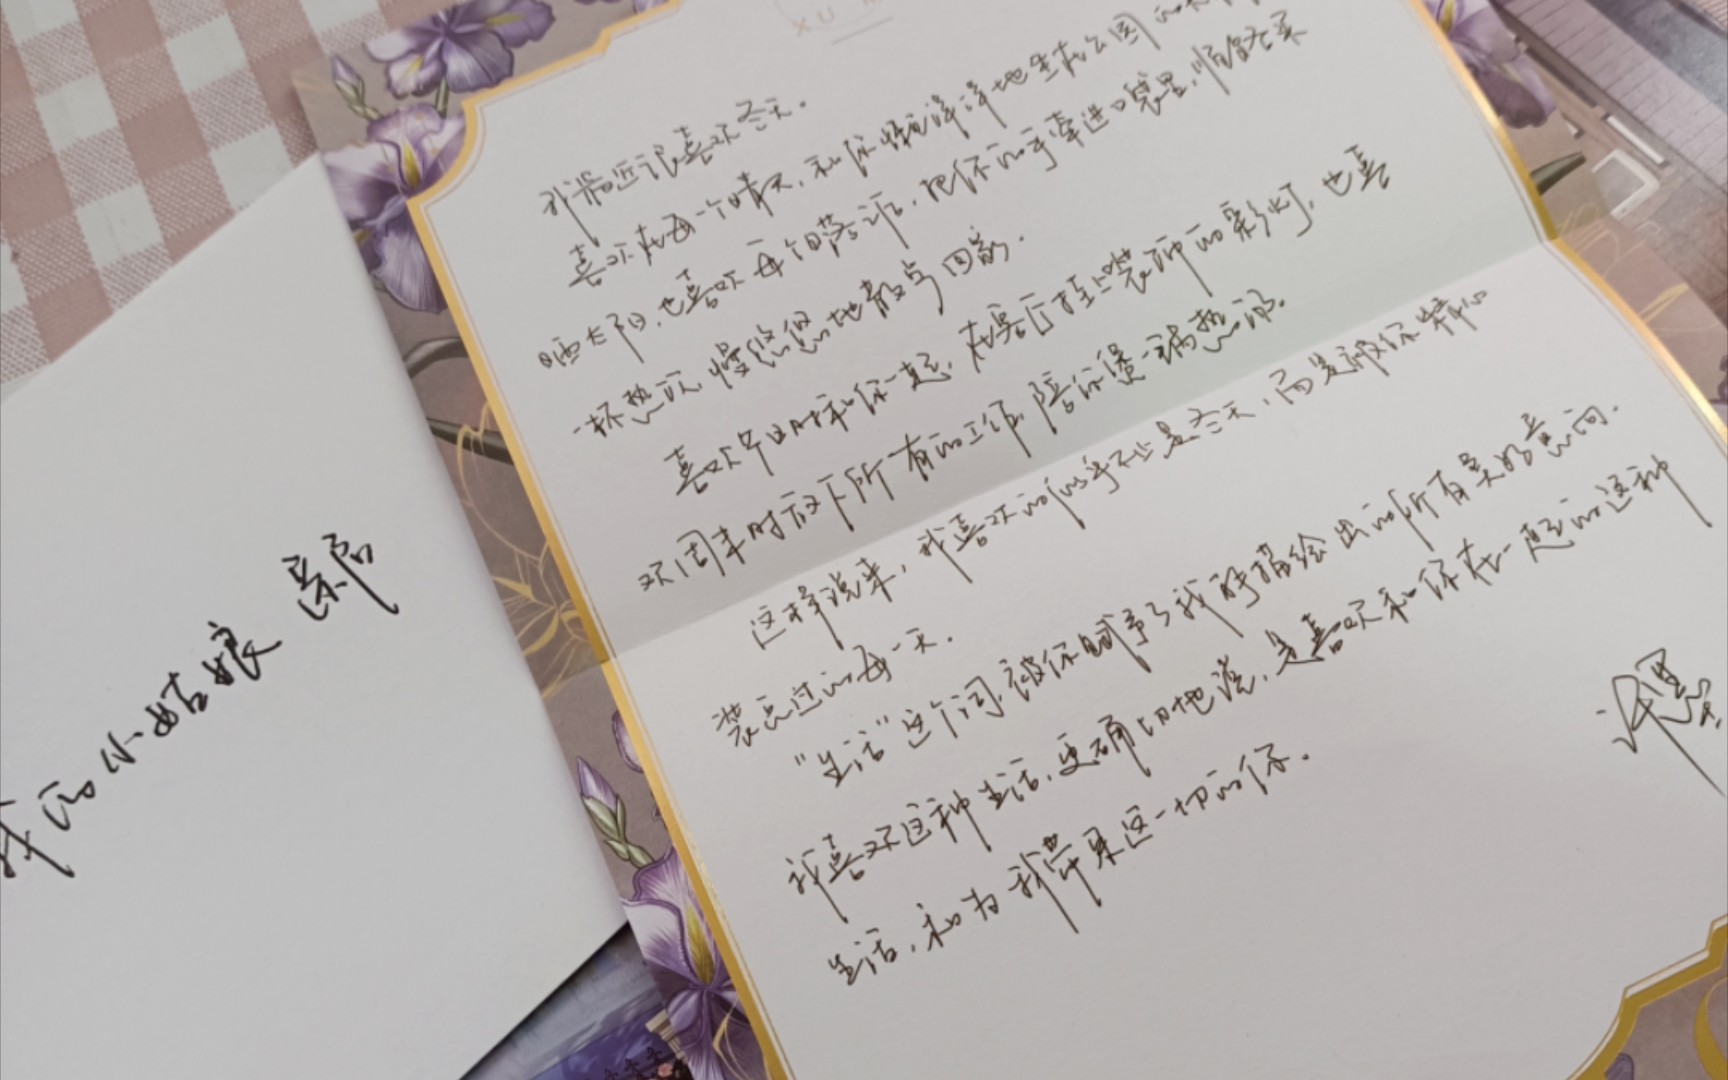 XU
我最近很喜欢冬天。
喜欢在每一个晴天，和你懒洋洋地坐在公园的
晒太阳，也喜欢每个日落后，把你的手牵进口袋里，顺路去买
一杯热饮，慢悠悠地散步回家。
喜欢午时和你一起，在客厅挂上装饰的彩灯，也喜
欢周末时放下所有的工作，陪你煲一锅热汤。
这样说来，我喜欢的似乎不止是冬天，而是被你精心
装点过的每一天。
“生活”这个词，被你赋予了我所描绘出的所有美好意向。
我喜欢这种生活，更确切地说，是喜欢和你在一起的这种
生活，和为我带来这一切的你。
许墨
我的小姑娘 亲启